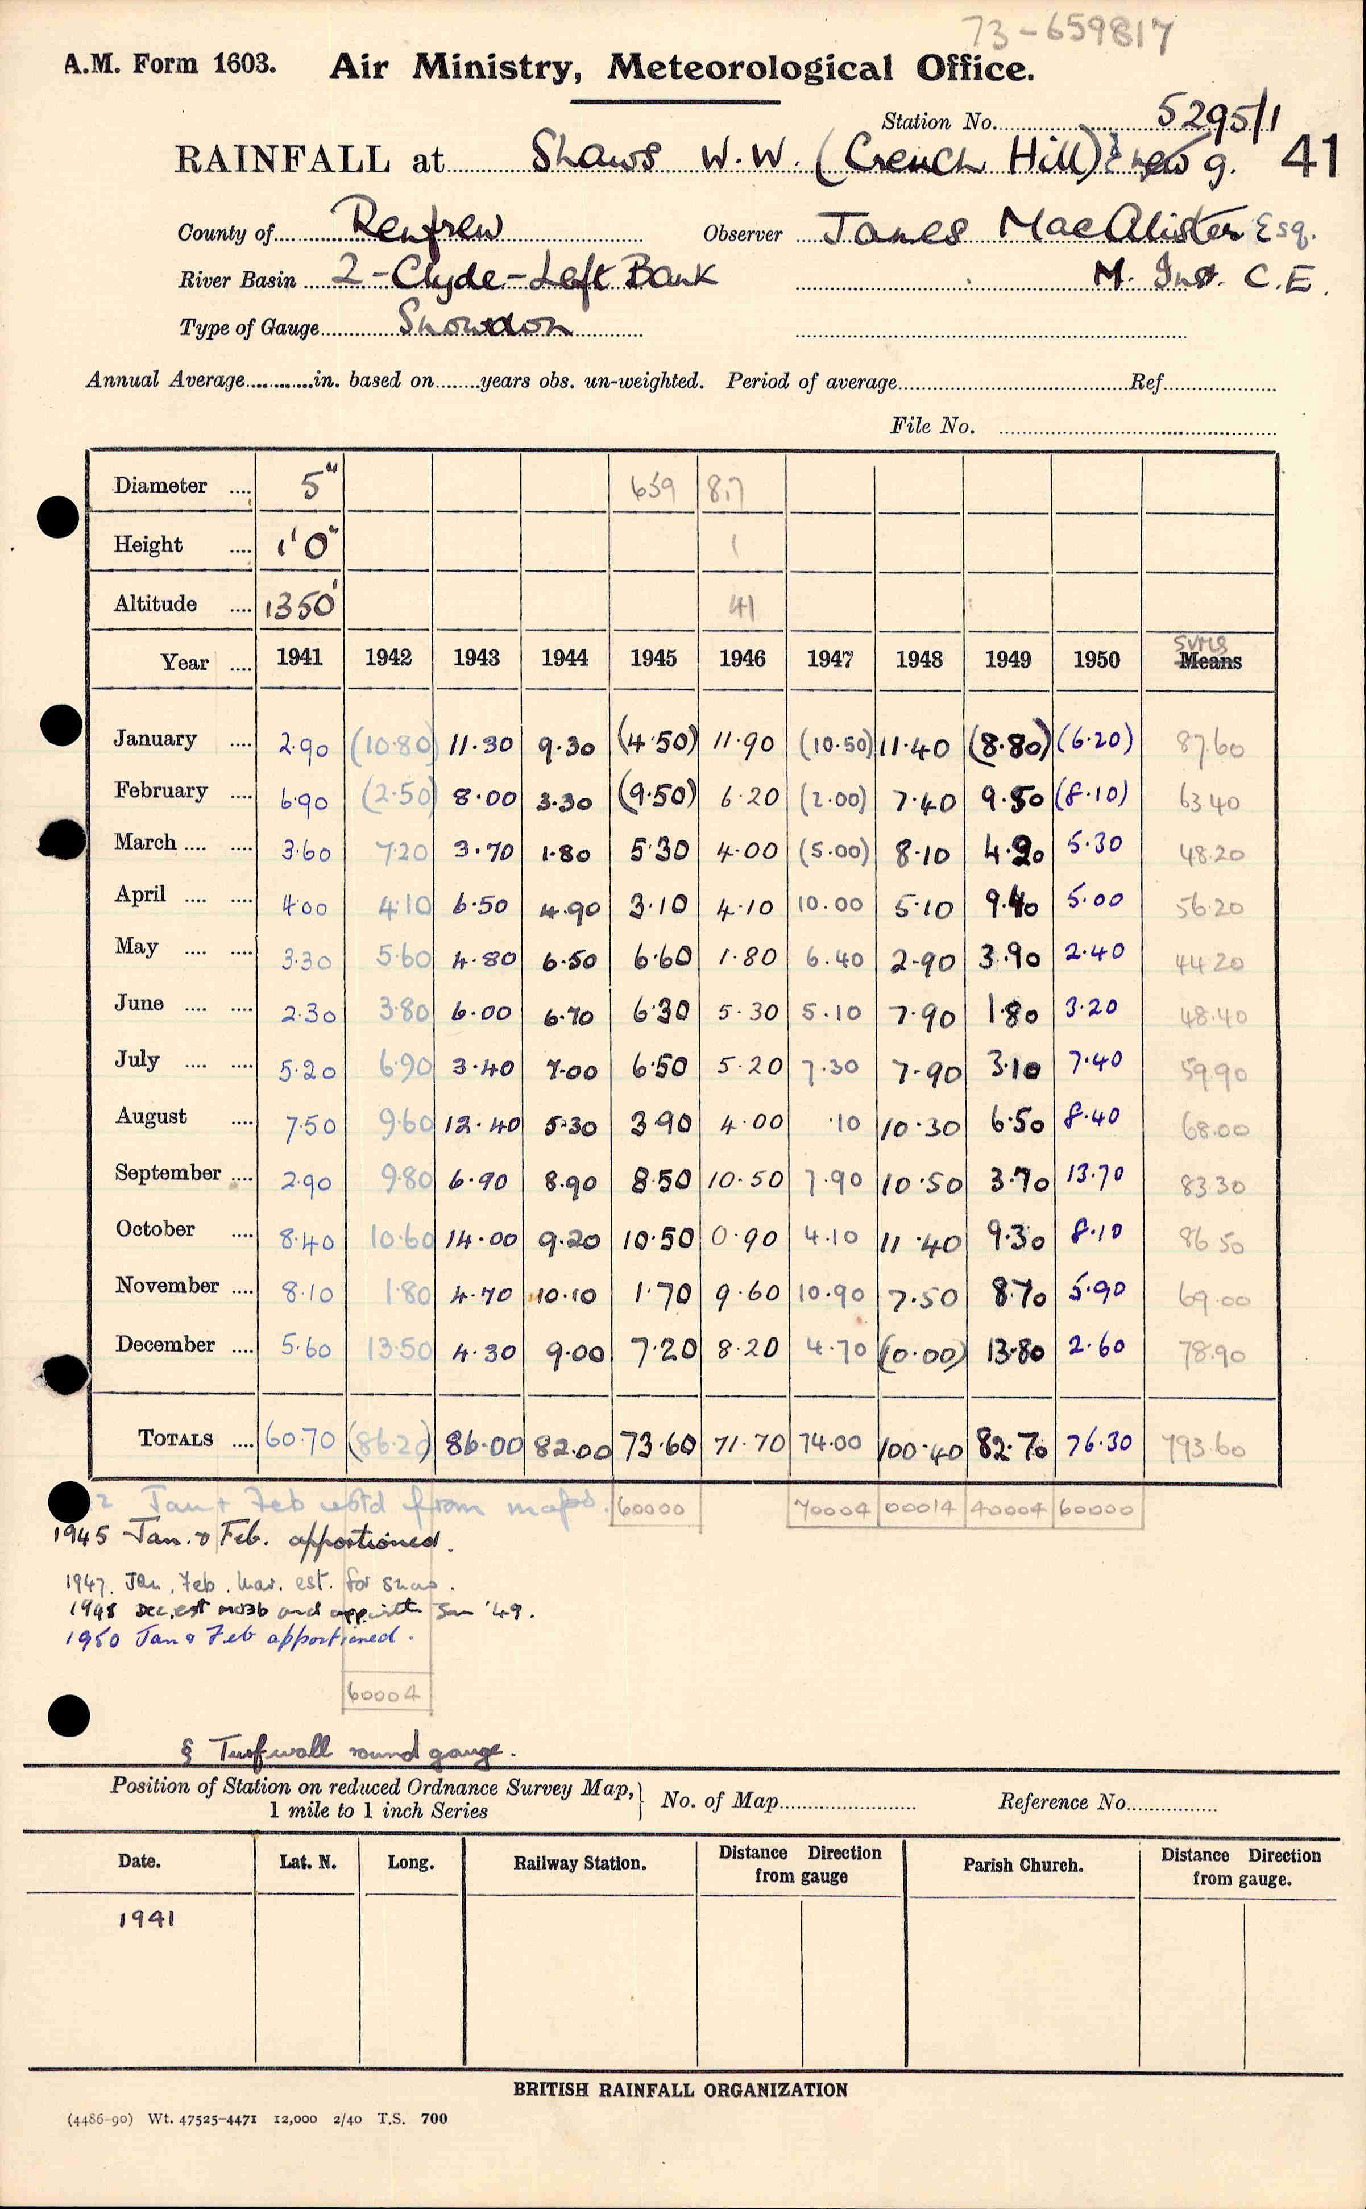 73-659817
A.M. Form 1603. Air Ministry, Meteorological Office.
Station No. 5295/1
RAINFALL at Shaws W.W. (Creuch Hill) § new g. 41
County of Renfrew Observer James MacAlister Esq.
River Basin 2-Clyde-Left Bank M. Inst. C.E.
Type of Gauge Snowdon
Annual Average............in. based on.......years obs. un-weighted. Period of average........Ref........
File No. ........
Diameter .... 5" 659 817
Height .... 1'0" 1
Altitude .... 1350' 41
Year .... 1941 1942 1943 1944 1945 1946 1947 1948 1949 1950 Means SUMS
January .... 2.90 (10.80) 11.30 9.30 (4.50) 11.90 (10.50) 11.40 (8.80) (6.20) 87.60
February .... 6.90 (2.50) 8.00 3.30 (9.50) 6.20 (2.00) 7.40 9.50 (8.10) 63.40
March .... .... 3.60 7.20 3.70 1.80 5.30 4.00 (5.00) 8.10 4.20 5.30 48.20
April .... .... 4.00 4.10 6.50 4.90 3.10 4.10 10.00 5.10 9.40 5.00 56.20
May .... .... 3.30 5.60 4.80 6.50 6.60 1.80 6.40 2.90 3.90 2.40 44.20
June .... .... 2.30 3.80 6.00 6.70 6.30 5.30 5.10 7.90 1.80 3.20 48.40
July .... .... 5.20 6.90 3.40 7.00 6.50 5.20 7.30 7.90 3.10 7.40 59.90
August .... 7.50 9.60 12.40 5.30 3.90 4.00 .10 10.30 6.50 8.40 68.00
September .... 2.90 9.80 6.90 8.90 8.50 10.50 7.90 10.50 3.70 13.70 83.30
October .... 8.40 10.60 14.00 9.20 10.50 0.90 4.10 11.40 9.30 8.10 86.50
November .... 8.10 1.80 4.70 10.10 1.70 9.60 10.90 7.50 8.70 5.90 69.00
December .... 5.60 13.50 4.30 9.00 7.20 8.20 4.70 (10.00) 13.80 2.60 78.90
TOTALS .... 60.70 (86.20) 86.00 82.00 73.60 71.70 74.00 100.40 82.70 76.30 793.60
2 Jan + Feb estd from maps. 60000 70004 00014 40004 60000
1945 Jan. & Feb. apportioned.
1947. Jan, Feb, Mar. est. for snow.
1948 Dec. est and app. with Jan '49.
1950 Jan & Feb apportioned.
60004
§ Turf wall round gauge.
Position of Station on reduced Ordnance Survey Map, } No. of Map........ Reference No........
1 mile to 1 inch Series
Date. Lat. N. Long. Railway Station. Distance Direction from gauge Parish Church. Distance Direction from gauge.
1941
BRITISH RAINFALL ORGANIZATION
(4486-90) Wt. 47525-4471 12,000 2/40 T.S. 700